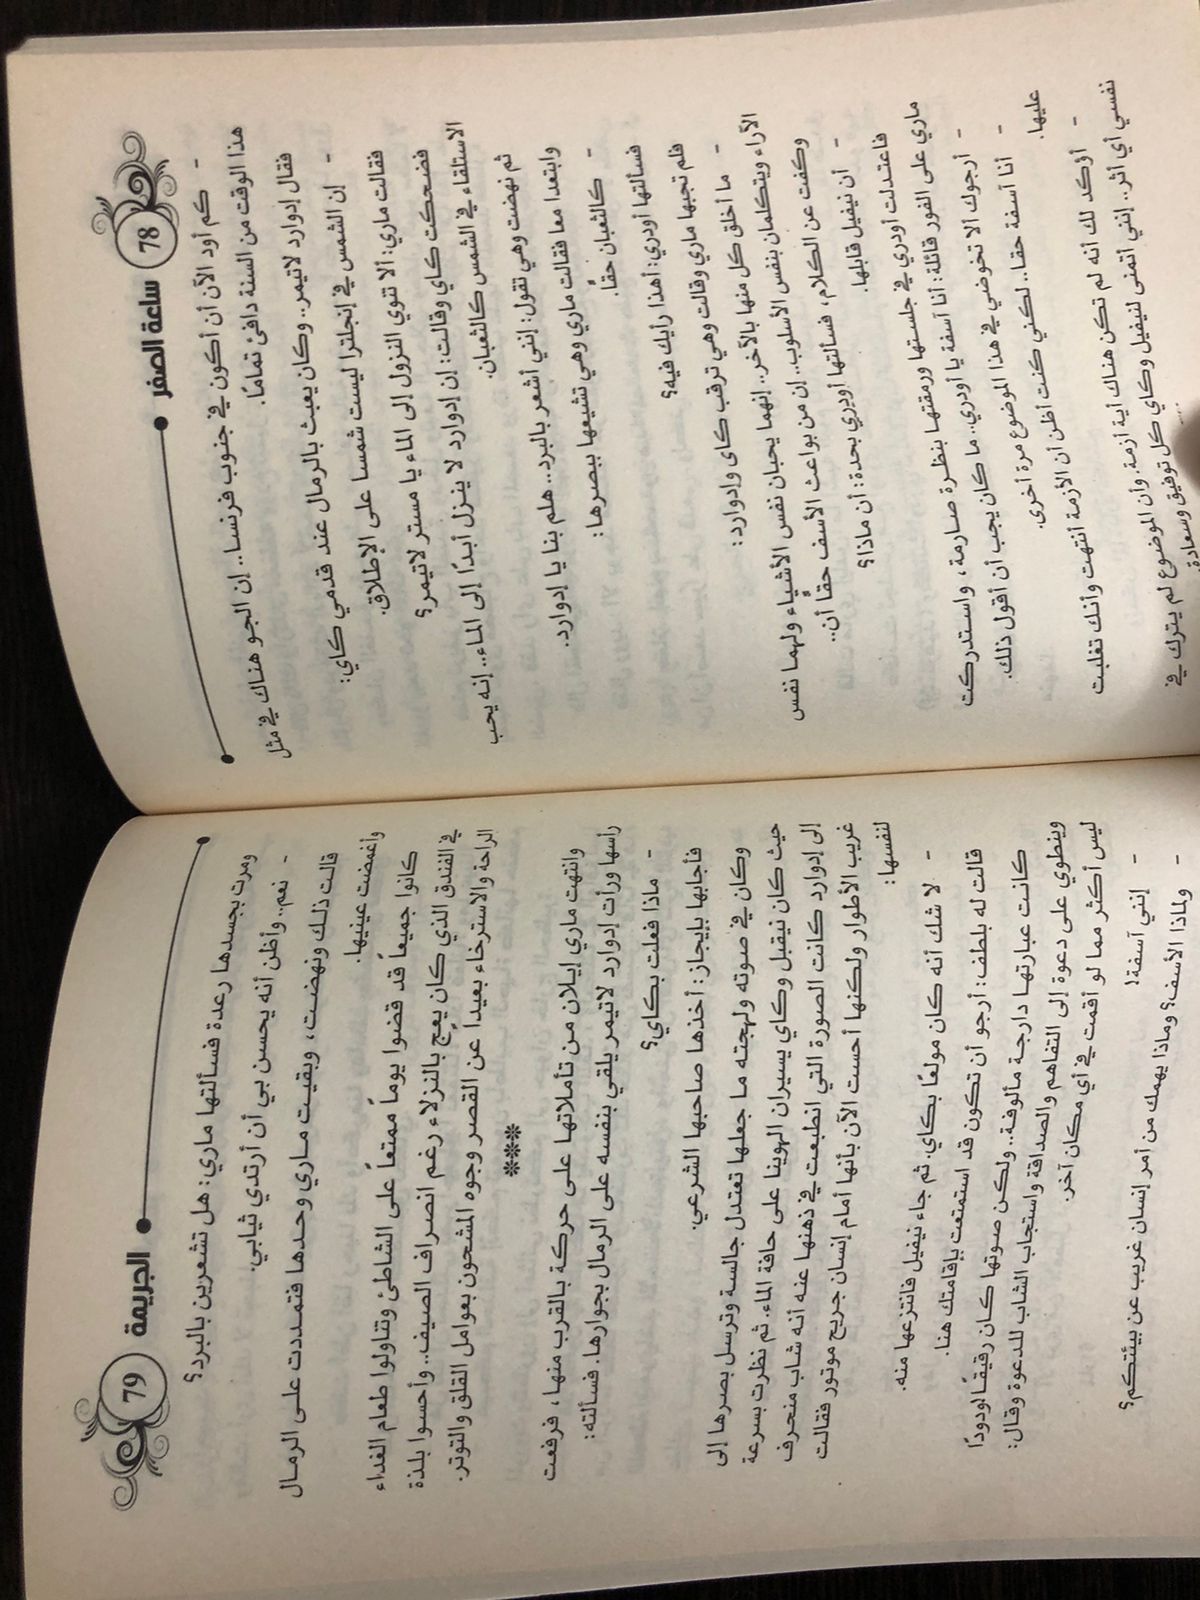 78 ساعة الصفر
- كم أود الآن أن أكون في جنوب فرنسا.. إن الجو هناك في مثل
هذا الوقت من السنة دافئ تمامًا.
فقال إدوارد لاتيمر.. وكان يعبث بالرمال عند قدمي كاي:
- إن الشمس في إنجلترا ليست شمسا على الإطلاق.
فقالت ماري: ألا تنوي النزول إلى الماء يا مستر لاتيمر؟
فضحكت كاي وقالت: إن إدوارد لا ينزل أبدًا إلى الماء.. إنه يحب
الاستلقاء في الشمس كالثعبان.
ثم نهضت وهي تقول: إنني أشعر بالبرد.. هلم بنا يا إدوارد.
وابتعدا معا فقالت ماري وهي تشيعها ببصرها:
- كالثعبان حقًا.
فسألتها أودري: أهذا رأيك فيه؟
فلم تجبها ماري وقالت وهي ترقب كاى وإدوارد:
- ما أخلق كل منها بالآخر.. إنهما يحبان نفس الأشياء ولهما نفس
الآراء ويتكلمان بنفس الأسلوب.. إن من بواعث الأسف حقًا أن..
وكفت عن الكلام، فسألتها أودري بحدة: أن ماذا؟
- أن نيفيل قابلها.
فاعتدلت أودري في جلستها ورمقتها بنظرة صارمة، واستدركت
ماري على الفور قائلة: أنا آسفة يا أودري.. ما كان يجب أن أقول ذلك.
- أرجوك ألا تخوضي في هذا الموضوع مرة أخرى.
- أنا آسفة حقا.. لكني كنت أظن أن الأزمة أنتهت وأنك تغلبت
عليها.
- أؤكد لك أنه لم تكن هناك أية أزمة. وأن الموضوع لم يترك في
نفسي أي أثر.. إنني أتمنى لنيفيل وكاي كل توفيق وسعادة
79 الجريمة
ومرت بجسدها رعدة فسألتها ماري: هل تشعرين بالبرد؟
- نعم.. وأظن أنه يحسن بي أن أرتدي ثيابي.
قالت ذلك ونهضت، وبقيت ماري وحدها فتمددت على الرمال
وأغمضت عينيها.
كانوا جميعاً قد قضوا يوماً ممتعاً على الشاطئ وتناولوا طعام الغداء
في الفندق الذي كان يعج بالنزلاء رغم انصراف الصيف.. وأحسوا بلذة
الراحة والاسترخاء بعيدا عن القصر وجوه المشحون بعوامل القلق والتوتر.
***
وانتهت ماري إيلان من تأملاتها على حركة بالقرب منها، فرفعت
رأسها ورأت إدوارد لاتيمر يلقي بنفسه على الرمال بجوارها. فسألته:
- ماذا فعلت بكاي؟
فأجابها بإيجاز: أخذها صاحبها الشرعي.
وكان في صوته ولهجته ما جعلها تعتدل جالسة وترسل بصرها إلى
حيث كان نيفيل وكاي يسيران الهوينا على حافة الماء. ثم نظرت بسرعة
إلى إدوارد كانت الصورة التي انطبعت في ذهنها عنه أنه شاب منحرف
غريب الأطوار ولكنها أحست الآن بأنها أمام إنسان جريح موتور فقالت
لنفسها:
- لا شك أنه كان مولعًا بكاي. ثم جاء نيفيل فانتزعها منه.
قالت له بلطف: أرجو أن تكون قد استمتعت بإقامتك هنا.
كانت عبارتها دارجة مألوفة.. ولكن صوتها كان رقيقًا لودودًا
وينطوي على دعوة إلى التفاهم والصداقة واستجاب الشاب للدعوة وقال:
ليس أكثر مما لو أقمت في أي مكان آخر.
- إنني آسفة!
- ولماذا الأسف؟ وماذا يهمك من أمر إنسان غريب عن بيئتكم؟